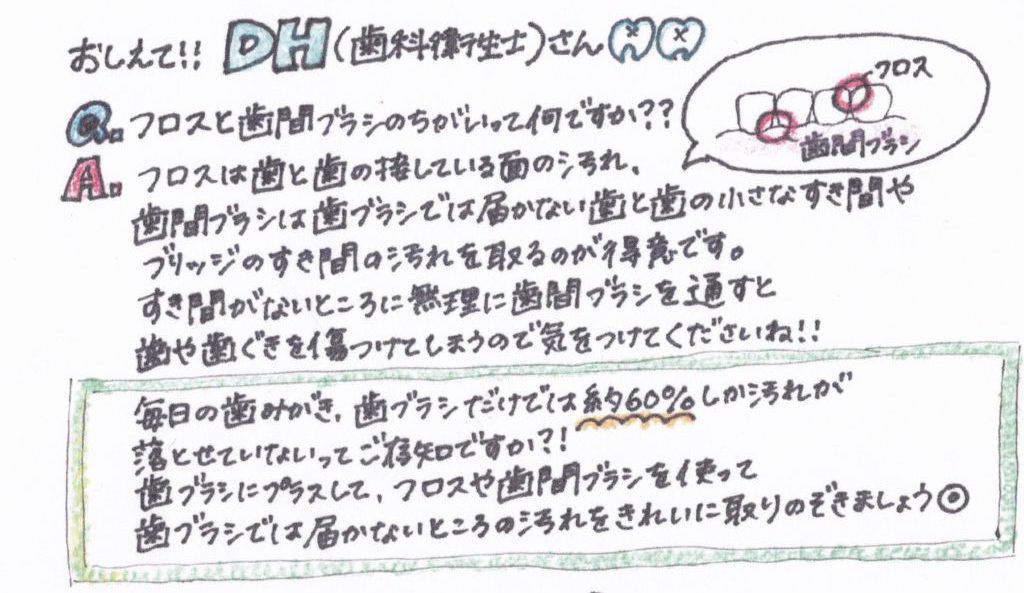 おしえて!! DH(歯科衛生士)さん
フロス
歯間ブラシ
Q. フロスと歯間ブラシのちがいって何ですか??
A. フロスは歯と歯の接している面の汚れ、
歯間ブラシは歯ブラシでは届かない歯と歯の小さなすき間や
ブリッジのすき間の汚れを取るのが得意です。
すき間がないところに無理に歯間ブラシを通すと
歯や歯ぐきを傷つけてしまうので気をつけてくださいね!!
毎日の歯みがき、歯ブラシだけでは約60%しか汚れが
落とせていないってご存知ですか?!
歯ブラシにプラスして、フロスや歯間ブラシを使って
歯ブラシでは届かないところの汚れをきれいに取りのぞきましょう